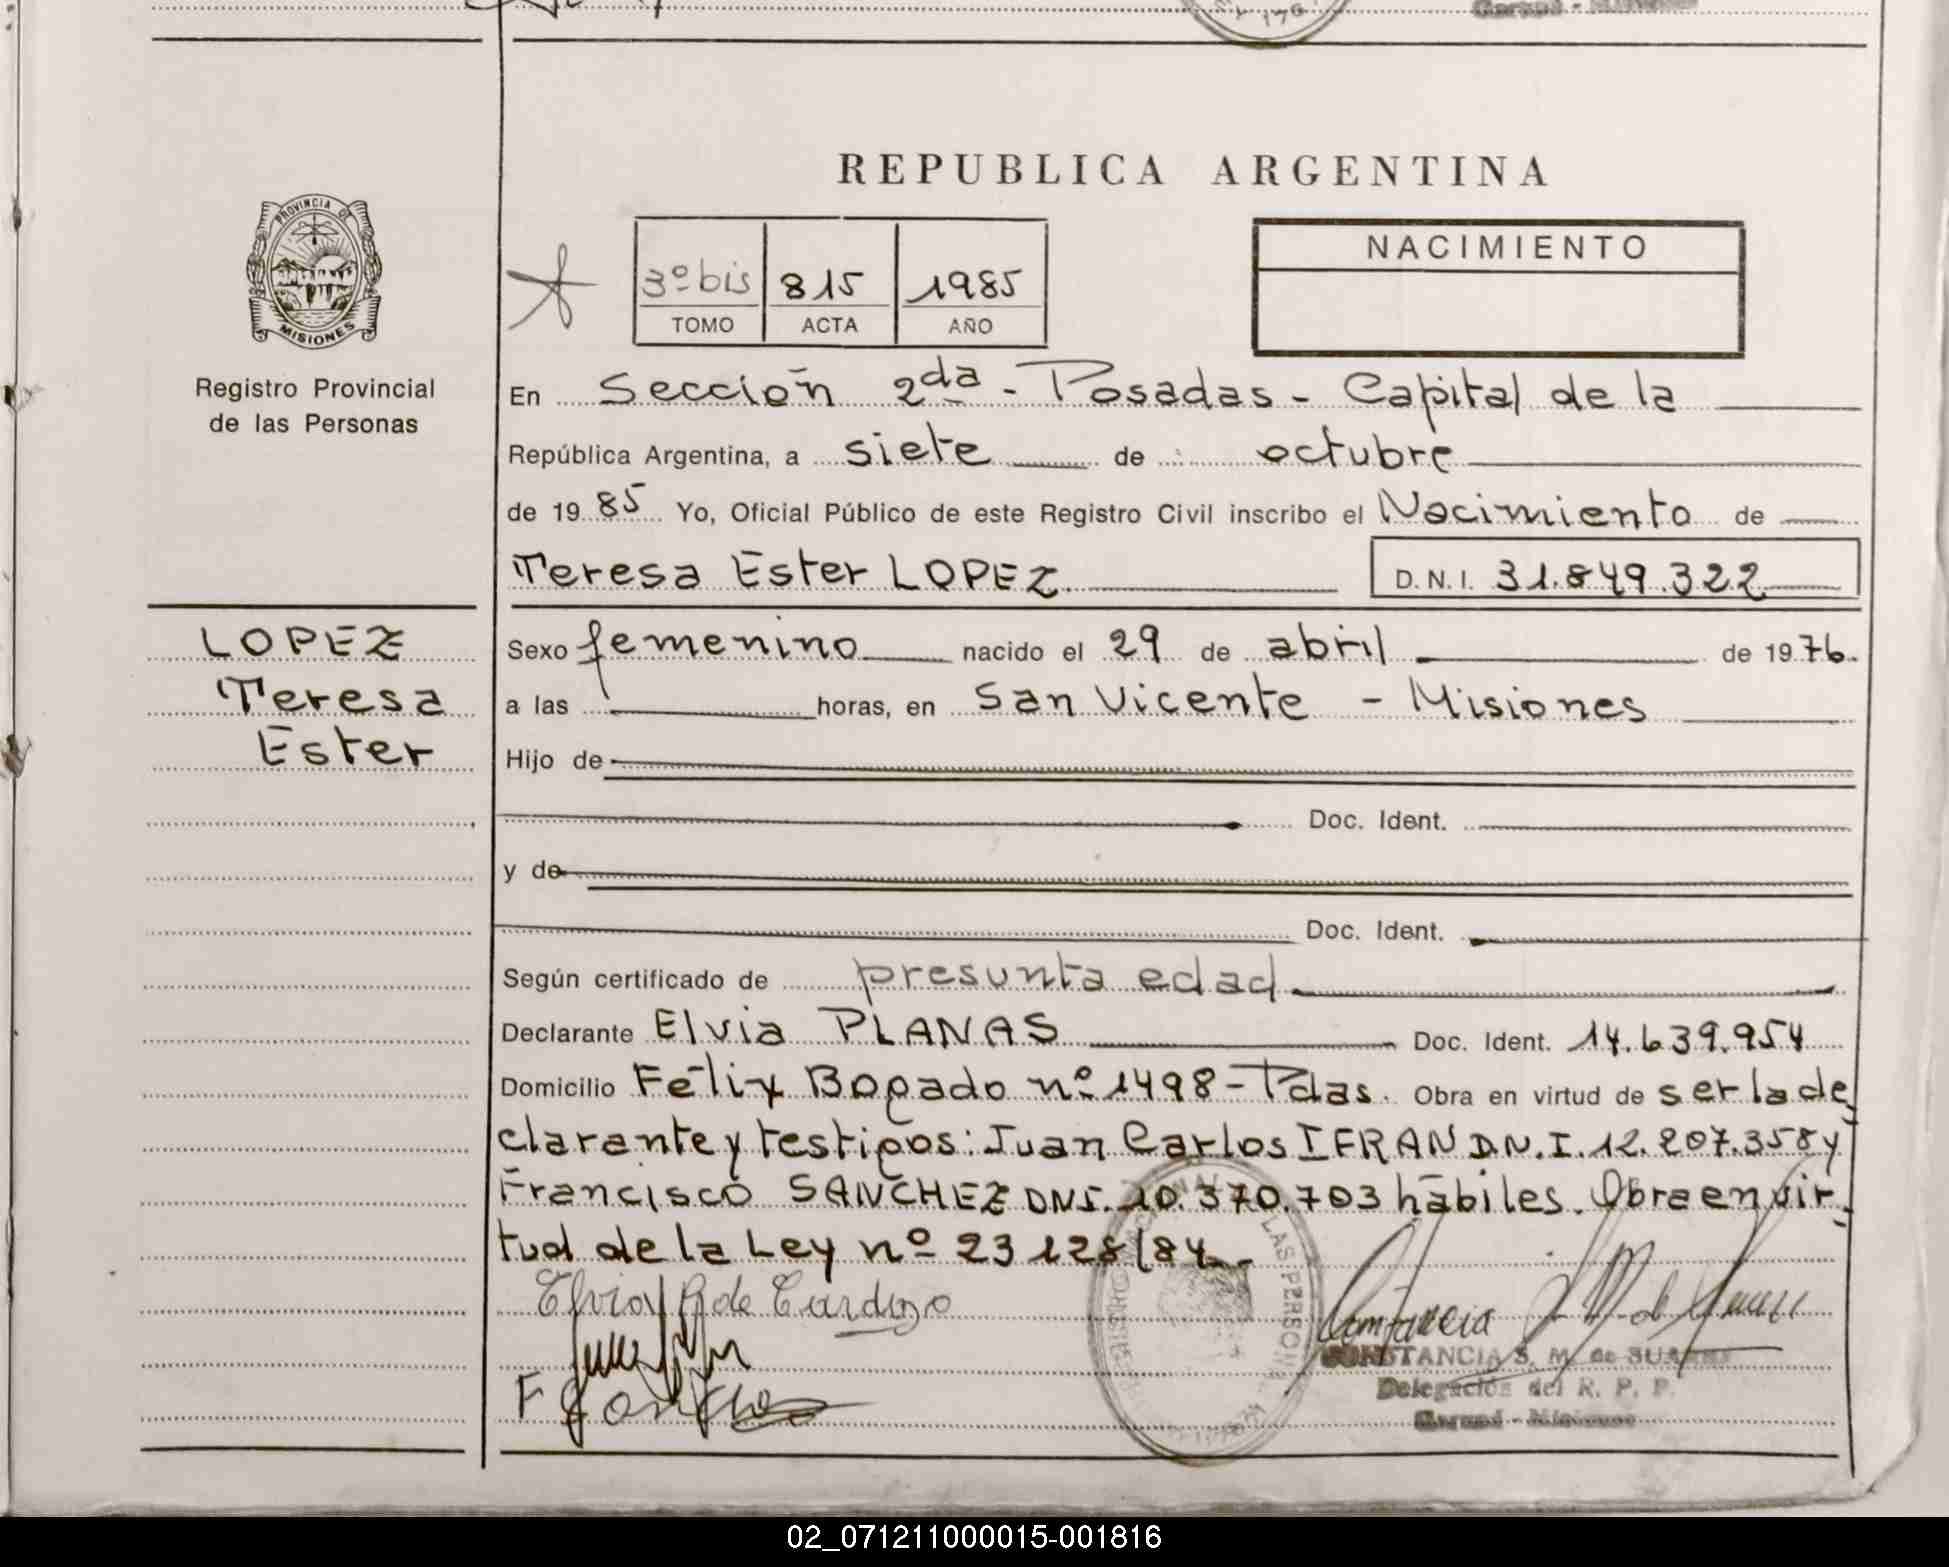 REPUBLICA ARGENTINA
PROVINCIA DE
MISIONES
Registro Provincial
de las Personas
3º bis 815 1985
TOMO ACTA AÑO
NACIMIENTO
En Sección 2da - Posadas - Capital de la
República Argentina, a siete de octubre
de 1985 Yo, Oficial Público de este Registro Civil inscribo el Nacimiento de
Teresa Ester LOPEZ D.N.I. 31.849.322
LOPEZ
Teresa
Ester
Sexo femenino nacido el 29 de abril de 1976.
a las horas, en San Vicente - Misiones
Hijo de
Doc. Ident.
y de
Doc. Ident.
Según certificado de presunta edad
Declarante Elvia PLANAS Doc. Ident. 14.639.954
Domicilio Félix Bogado nº 1498 - Pdas. Obra en virtud de ser la de
clarante y testigos: Juan Carlos IFRAN D.N.I. 12.207.358 y
Francisco SANCHEZ DNI. 10.370.703 hábiles. Obra en vir-
tud de la Ley nº 23128/84.-
de Cardozo
LAS PERSONAS
CONSTANCIA S. M. de SUAREZ
Delegación del R. P. P.
Garupá - Misiones
02_071211000015-001816